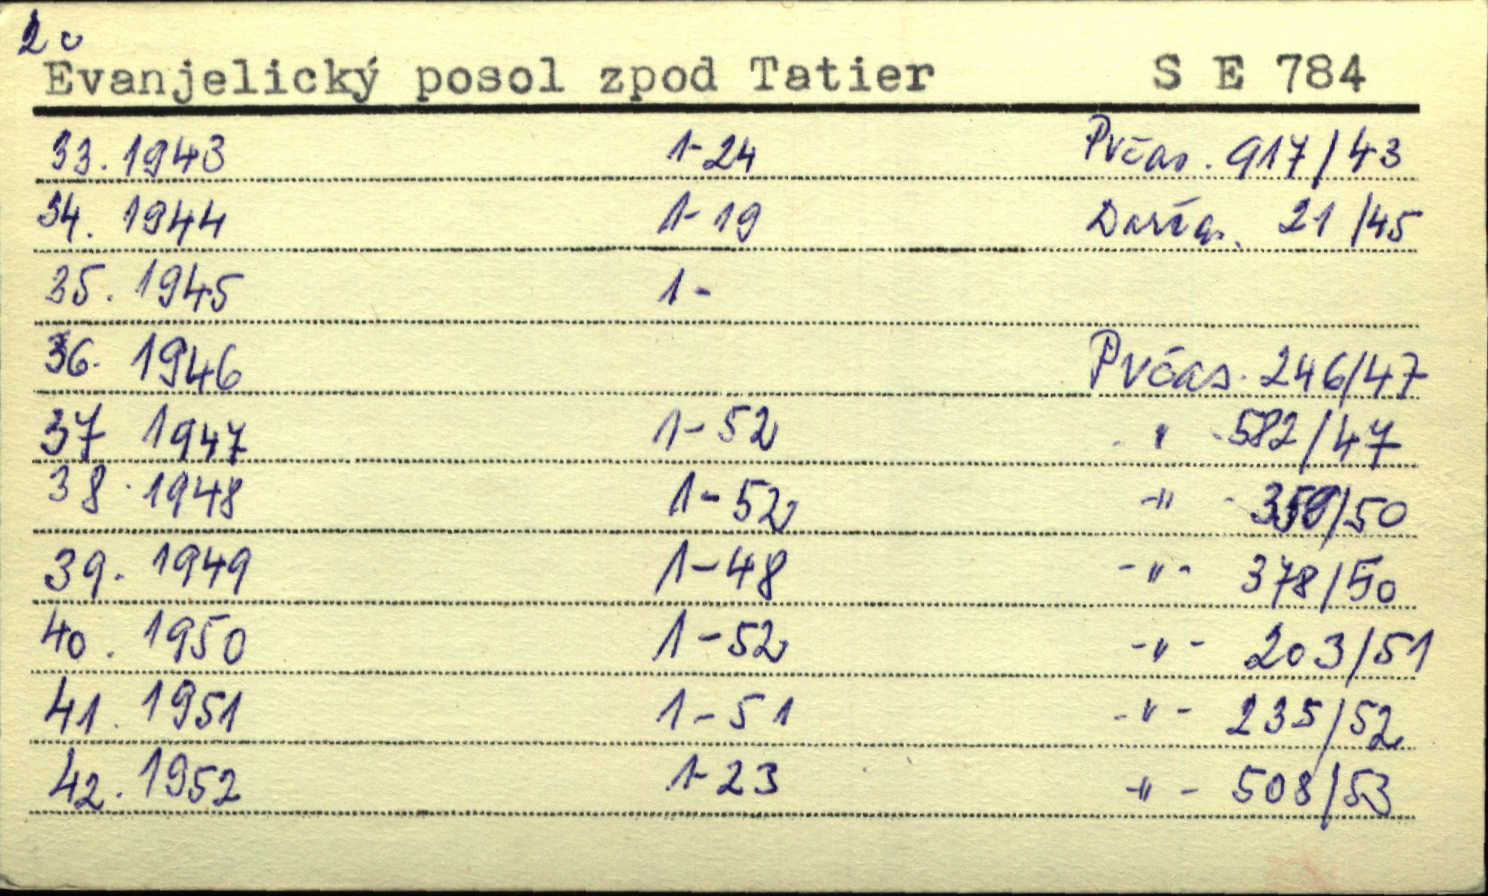 Evanjelický posol zpod Tatier S E 784
33. 1943 1-24 Pvčas. 917/43
34. 1944 1-19 21/45
35. 1945 1-
36. 1946 Pvčas. 246/47
37 1947 1-52 " 582/47
38. 1948 1-52 -"- /50
39. 1949 1-48 -"- 378/50
40. 1950 1-52 -"- 203/51
41. 1951 1-51 -"- 235/52
42. 1952 1-23 -"- 508/53